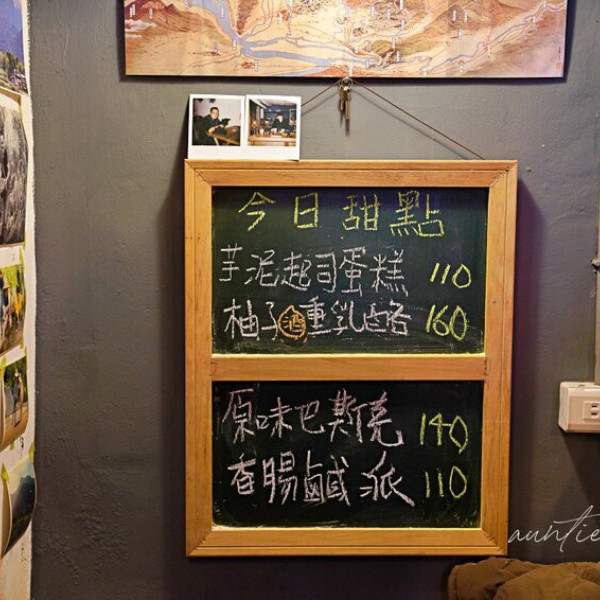 今日甜點
芋泥起司蛋糕 110
柚子酒重乳酪 160
原味巴斯克 140
香腸鹹派 110
auntie